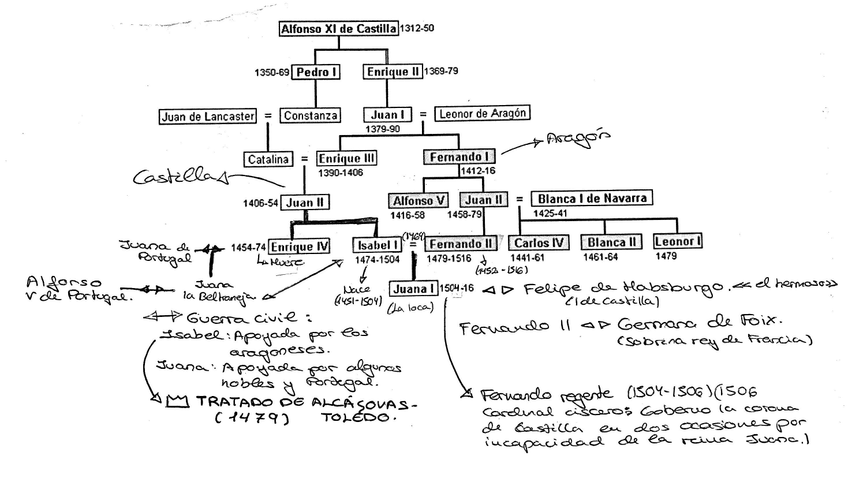 Alfonso XI de Castilla 1312-50
1350-69 Pedro I Enrique II 1369-79
Juan de Lancaster = Constanza Juan I = Leonor de Aragón
1379-90
Aragón
Catalina = Enrique III Fernando I
1390-1406 1412-16
Castilla
1406-54 Juan II Alfonso V Juan II = Blanca I de Navarra
1416-58 1458-79 1425-41
(1469)
Juana de Portugal 1454-74 Enrique IV Isabel I = Fernando II Carlos IV Blanca II Leonor I
La Muere 1474-1504 1479-1516 1441-61 1461-64 1479
(1452-1516)
Alfonso V de Portugal. Juana la Beltraneja Nace (1451-1504) Juana I 1504-16 Felipe de Habsburgo. << el hermoso>>
(La loca) (I de Castilla)
Guerra civil:
Isabel: Apoyada por los
aragoneses.
Juana: Apoyada por algunos
nobles y Portugal.
TRATADO DE ALCÁSOVAS-
(1479) TOLEDO.
Fernando II Germana de Foix.
(Sobrina rey de Francia)
Fernando regente (1504-1506) (1506
Cardinal cisceros Goberno la corona
de Castilla en dos ocasiones por
incapacidad de la reina Juana.)